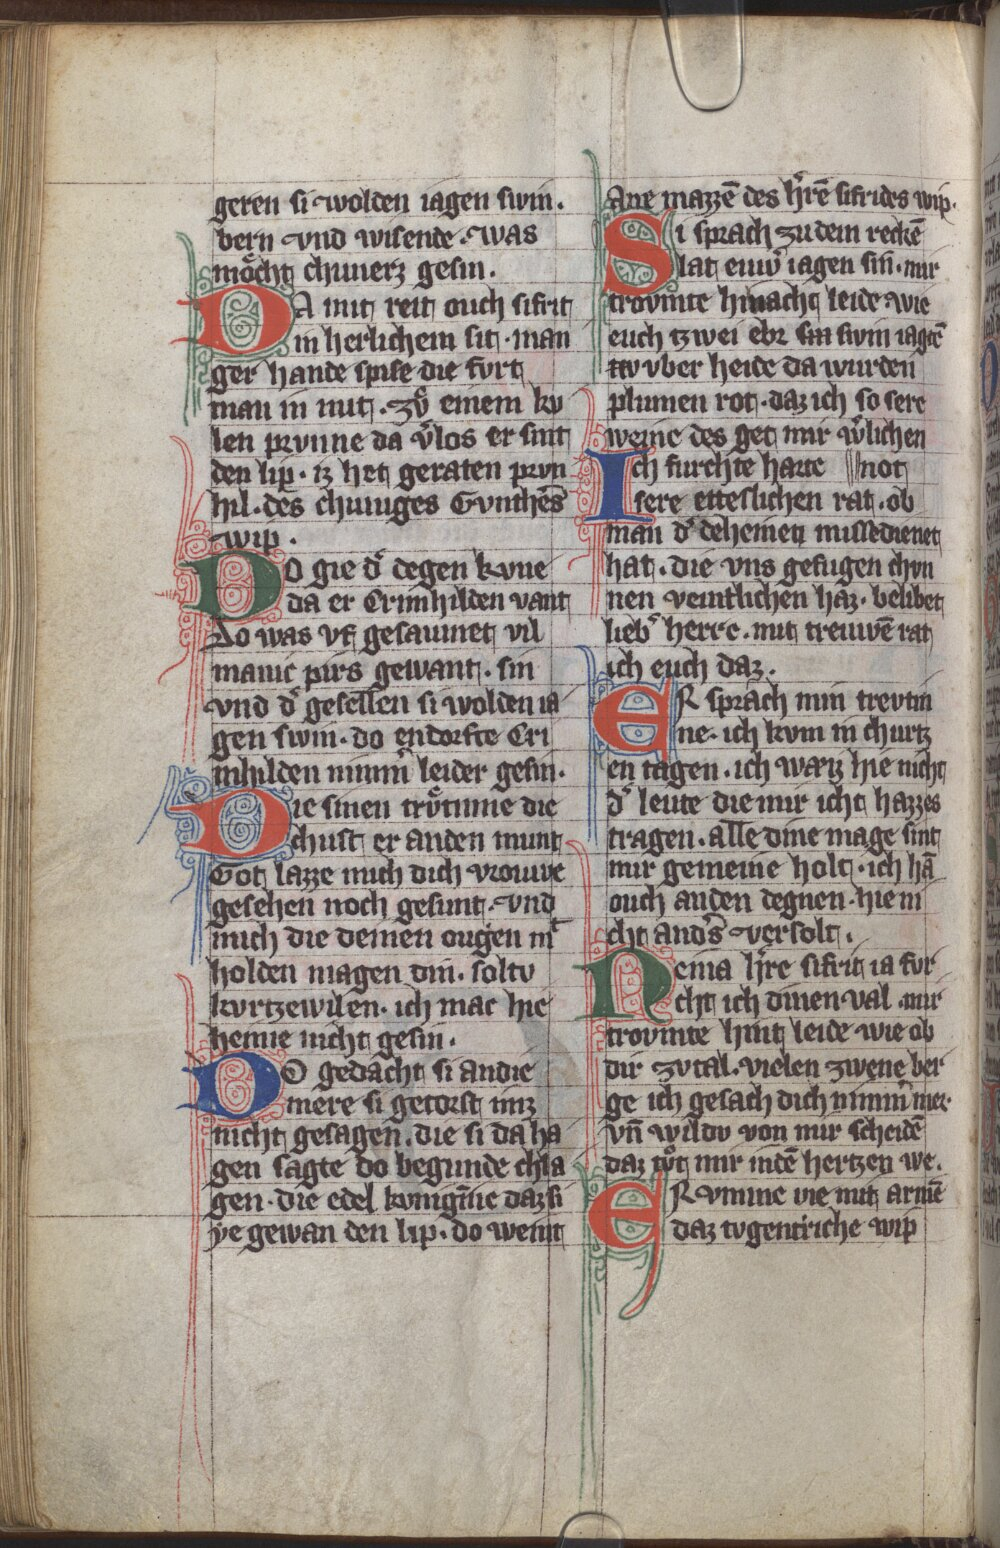 geren si wolden iagen swin.
bern vnd wisende. was
moͤcht chuͤnerz gesin.
DA mit reit ouch sifrit
in herlichem sit. man
ger hande spise die fvrt
man in mit. zvͦ einem kv
len prvnne da v͛los er sint
den lip. iz het geraten prvn
hil. des chuniges Gvnthe͛s
wip.
DO gie d͛ degen kvne
da er Crimhilden vant
Do was vf gesaumet vil
manic pirs gewant. sin
vnd d͛ gesellen si wolden ia
gen swin. do endorfte Cri
mhilden nimm͛ leider gesin.
Die sinen trvͦtinne die
chust er anden munt
Got lazze mich dich vrouwe
gesehen noch gesunt. vnd
mich die deinen ougen m͛
holden magen din. soltv
kvrtzewilen. ich mac hie
heime nicht gesin.
DO gedacht si andie
mere si getorst imz
nicht gesagen. die si da ha
gen sagte do begunde chla
gen. die edel kvniginne daz si
ye gewan den lip. do weint
Ane mazzē des h͛rē sifrides wip.
Si sprach zu dem reckē
lat euw͛ iagen sin. mir
trovmte hinacht leide wie
euch tzwei ebr swin iagtē
vber heide da wurden
plumen rot. daz ich so sere
weine des get mir w͛lichen
not
Ich furchte harte
sere etteslichen rat. ob
man d͛ deheinen missedienet
hat. die vns gefugen chvn
nen veintlichen haz. belibet
lieb͛ herre. mit treuwē rat
ich euch daz.
ER sprach min trevtin
ne. ich kvm in churtz
en tagen. ich waiz hie nicht
d͛ leute die mir icht hazzes
tragen. alle dine mage sint
mir gemeine holt. ich hā
ouch anden degnen. hie ni
cht and͛s versolt.
Neina h͛re sifrit ia fvr
cht ich dinen val. mir
trovmte hint leide wie ob
dir zvtal. vielen zwene ber
ge ich gesach dich nimm͛ mer.
vn̄ wildv von mir scheidē
daz tvͦt mir indē hertzen we.
ER vminc vie mit armē
daz tvgentriche wip